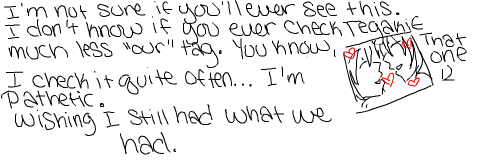 I'm not sure if you'll ever see this.
I don't know if you ever check Tegakie
much less "our" tag. You know,
That
one
I check it quite often... I'm
Pathetic.
Wishing I still had what we
had.